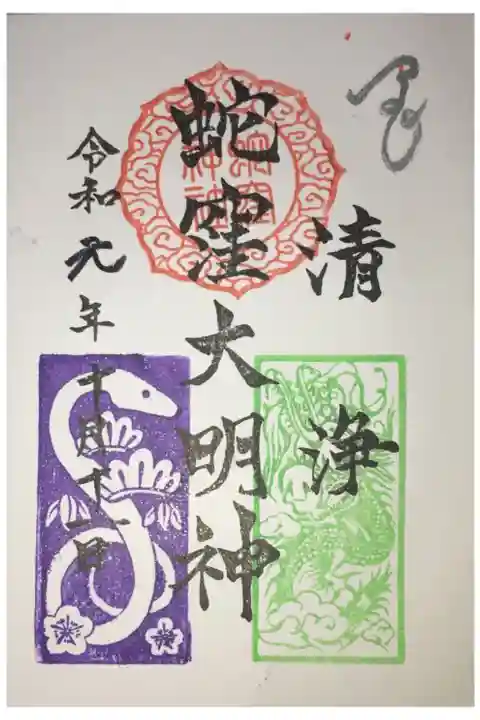 清浄
蛇窪大明神
令和元年十月十一日